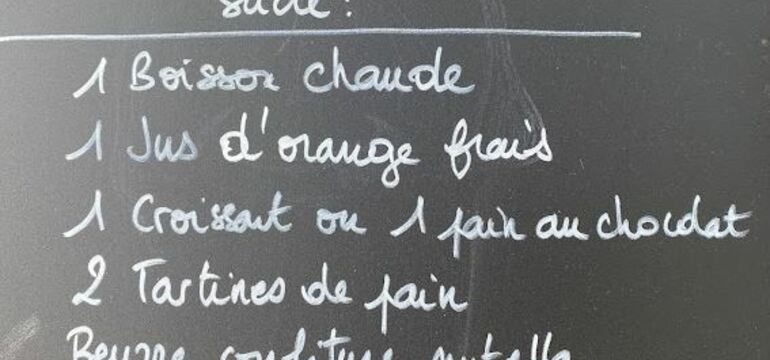 sucré :
1 Boisson chaude
1 Jus d'orange frais
1 Croissant ou 1 pain au chocolat
2 Tartines de pain
Beurre confiture nutella